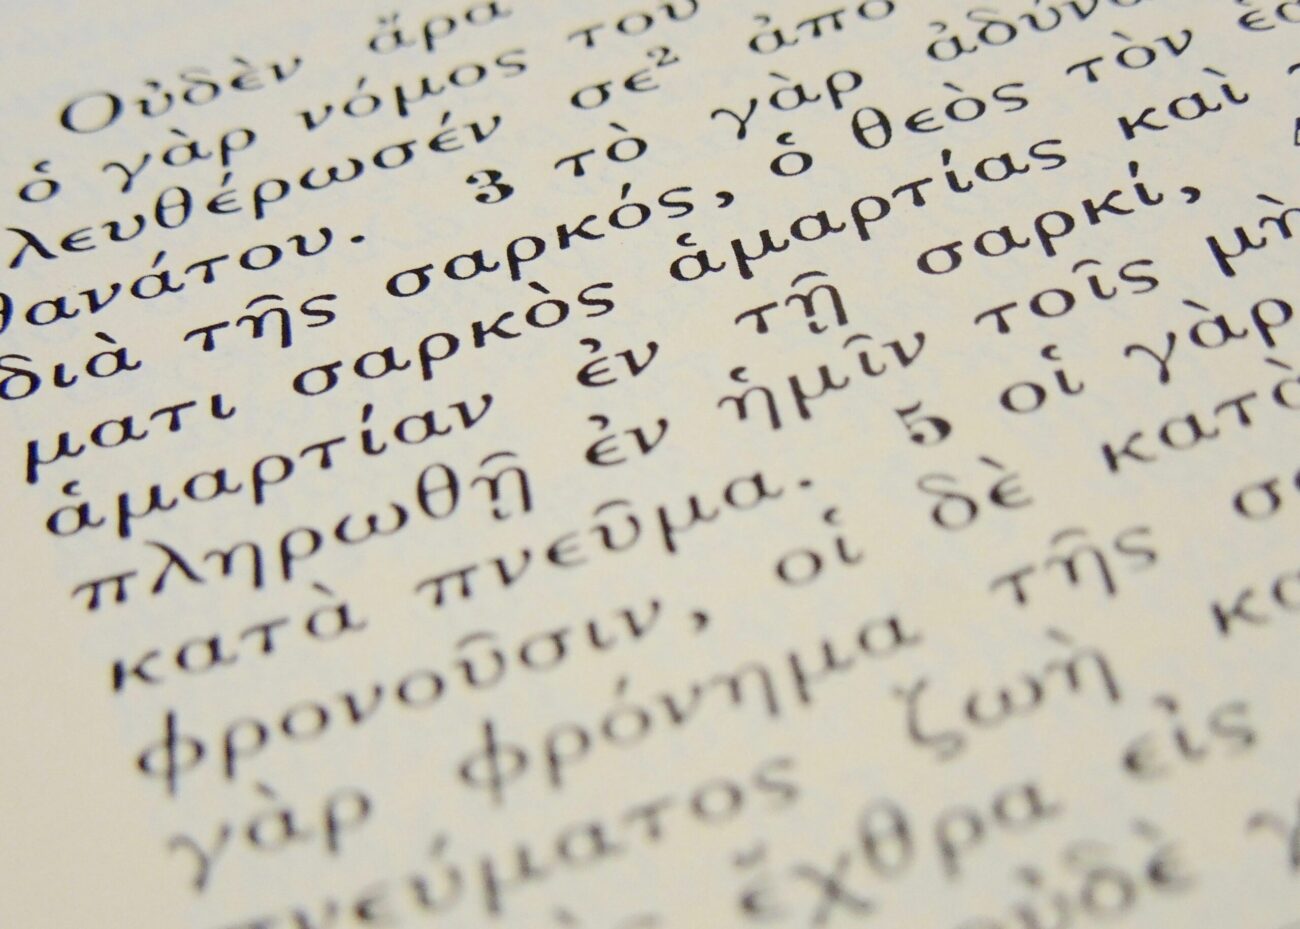 Οὐδὲν ἄρα
ὁ γὰρ νόμος τοῦ
λευθέρωσέν σε² ἀπὸ
θανάτου. 3 τὸ γὰρ ἀδύνα
διὰ τῆς σαρκός, ὁ θεὸς τὸν ἑα
ματι σαρκὸς ἁμαρτίας καὶ
ἁμαρτίαν ἐν τῇ σαρκί,
πληρωθῇ ἐν ἡμῖν τοῖς μὴ
κατὰ πνεῦμα. 5 οἱ γὰρ
φρονοῦσιν, οἱ δὲ κατὰ
γὰρ φρόνημα τῆς σα
πνεύματος ζωὴ κα
ἔχθρα εἰς
οὐδὲ γ